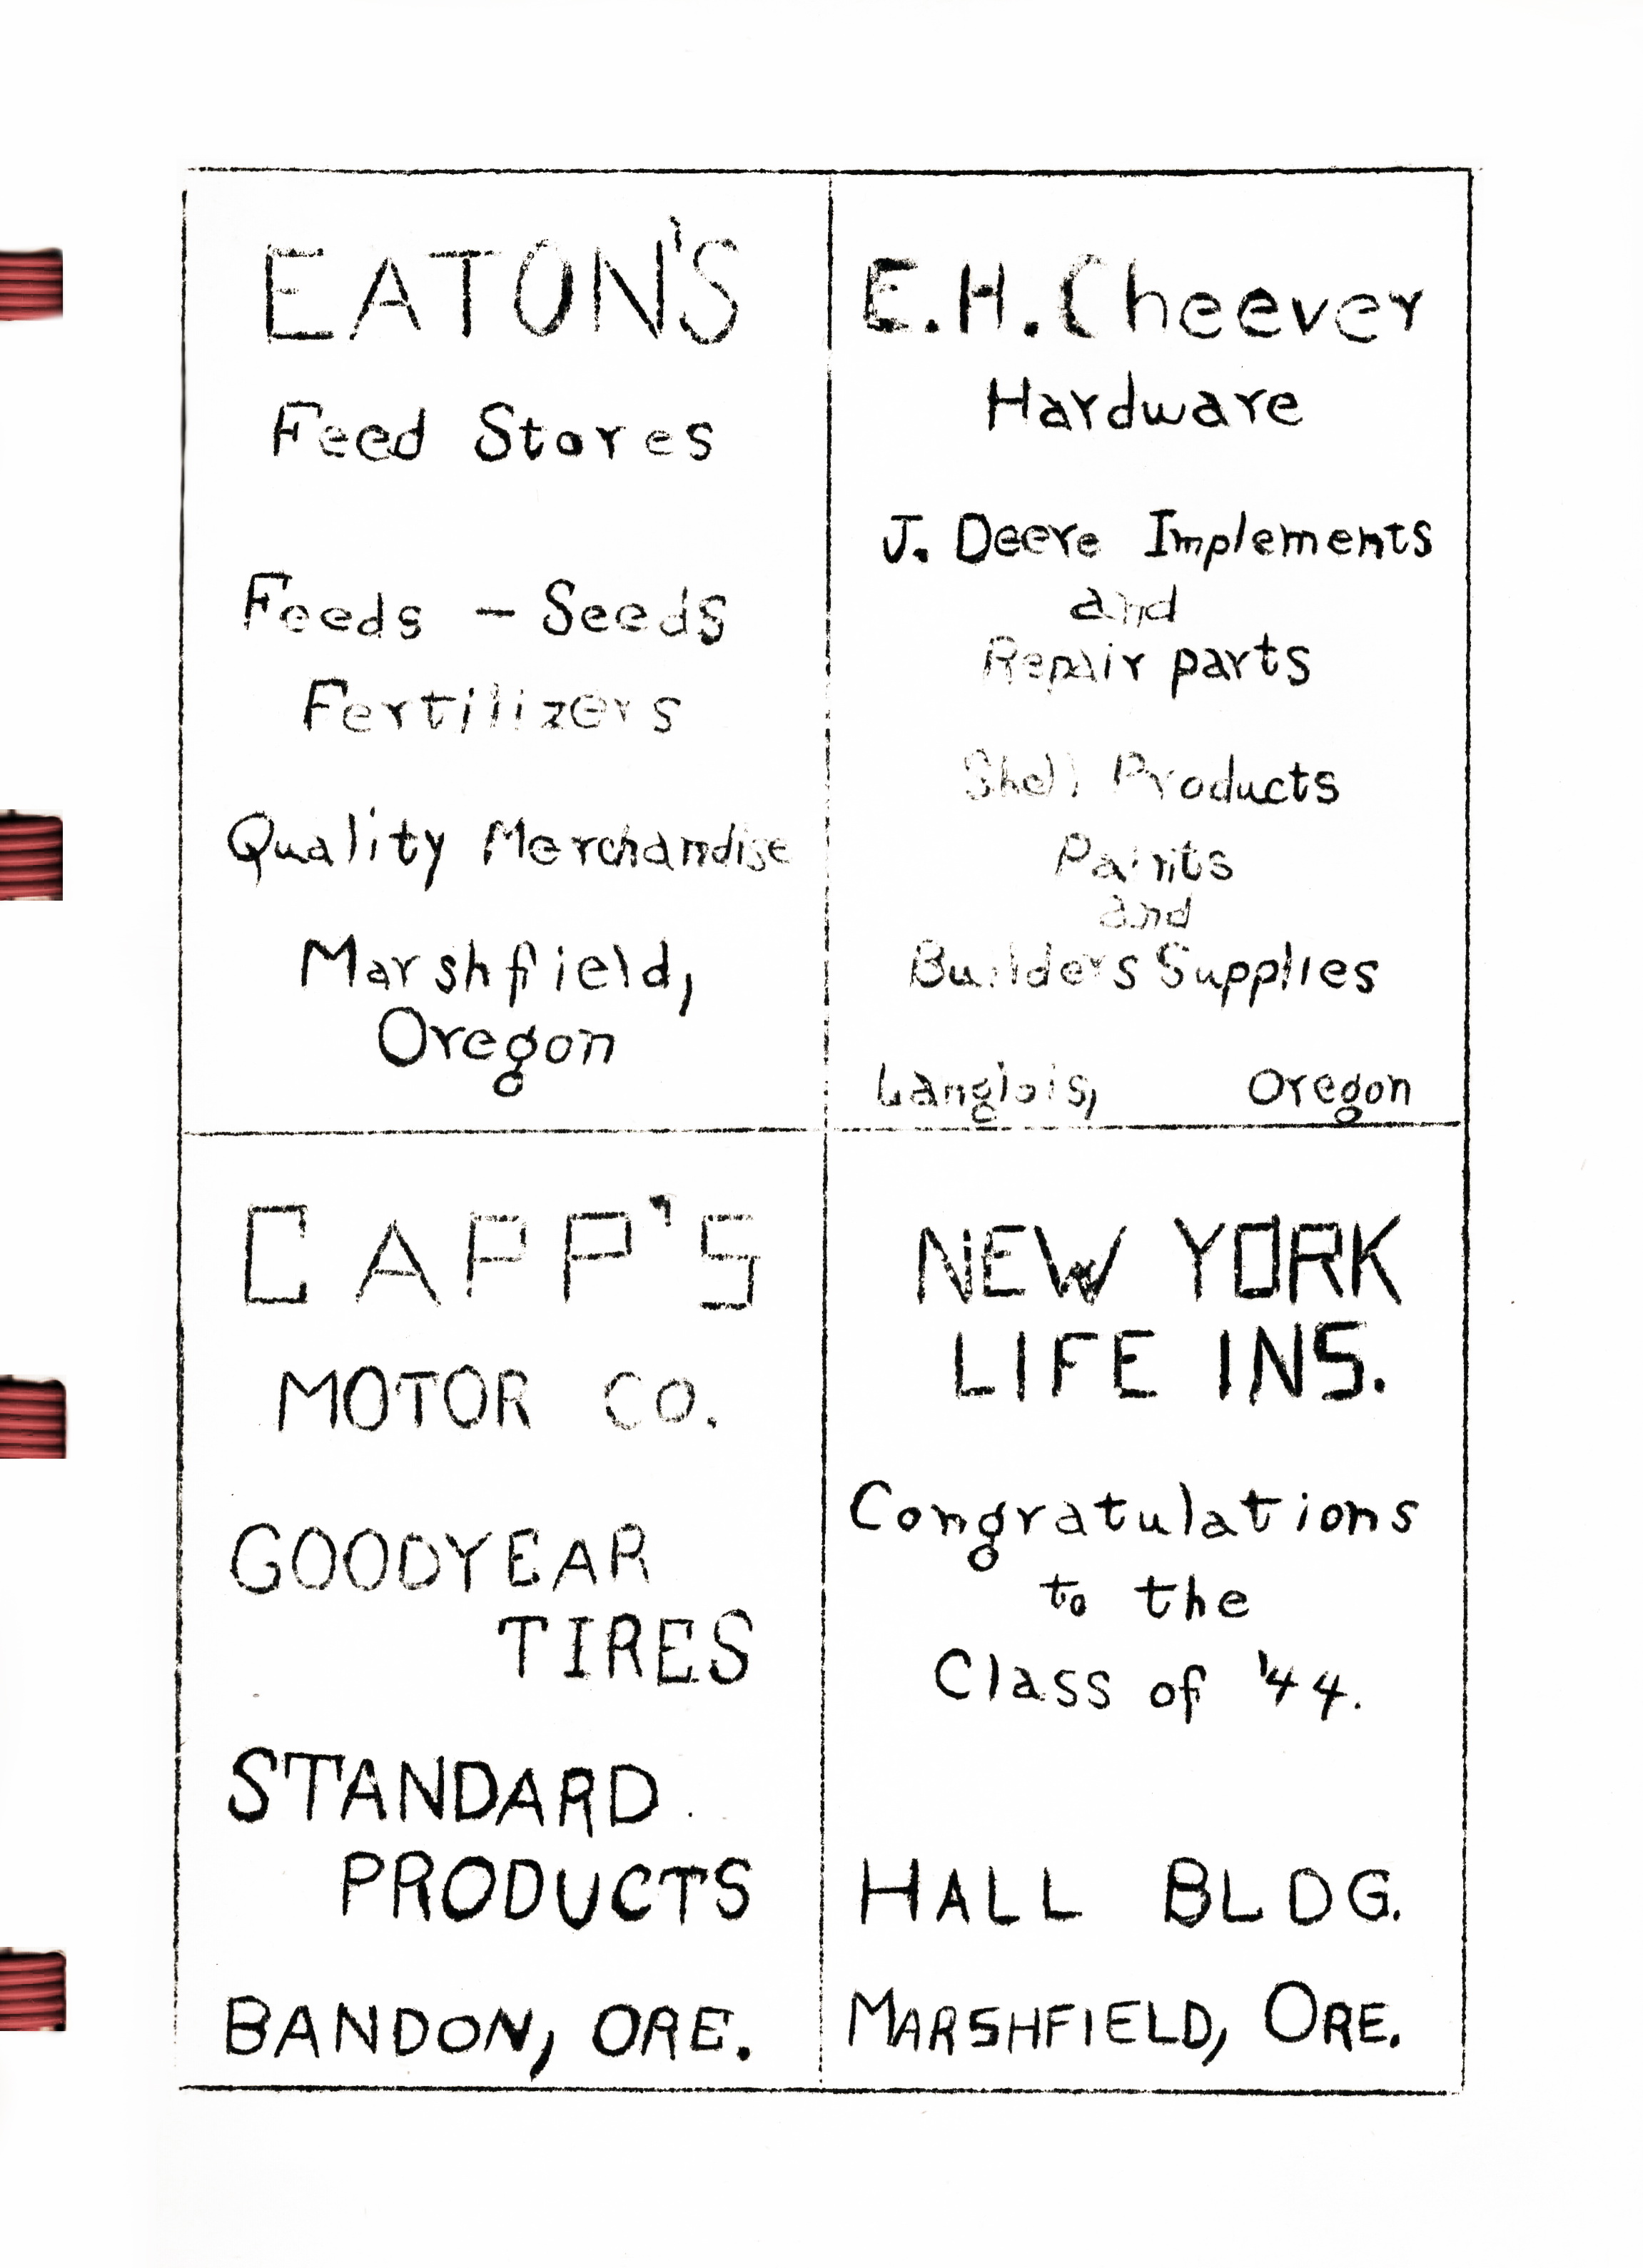 EATON'S
Feed Stores
Feeds - Seeds
Fertilizers
Quality Merchandise
Marshfield,
Oregon
E.H. Cheever
Hardware
J. Deere Implements
and
Repair parts
Shell Products
Paints
and
Builders Supplies
Langlois, Oregon
CAPP'S
MOTOR CO.
GOODYEAR
TIRES
STANDARD
PRODUCTS
BANDON, ORE.
NEW YORK
LIFE INS.
Congratulations
to the
Class of '44.
HALL BLDG.
MARSHFIELD, ORE.